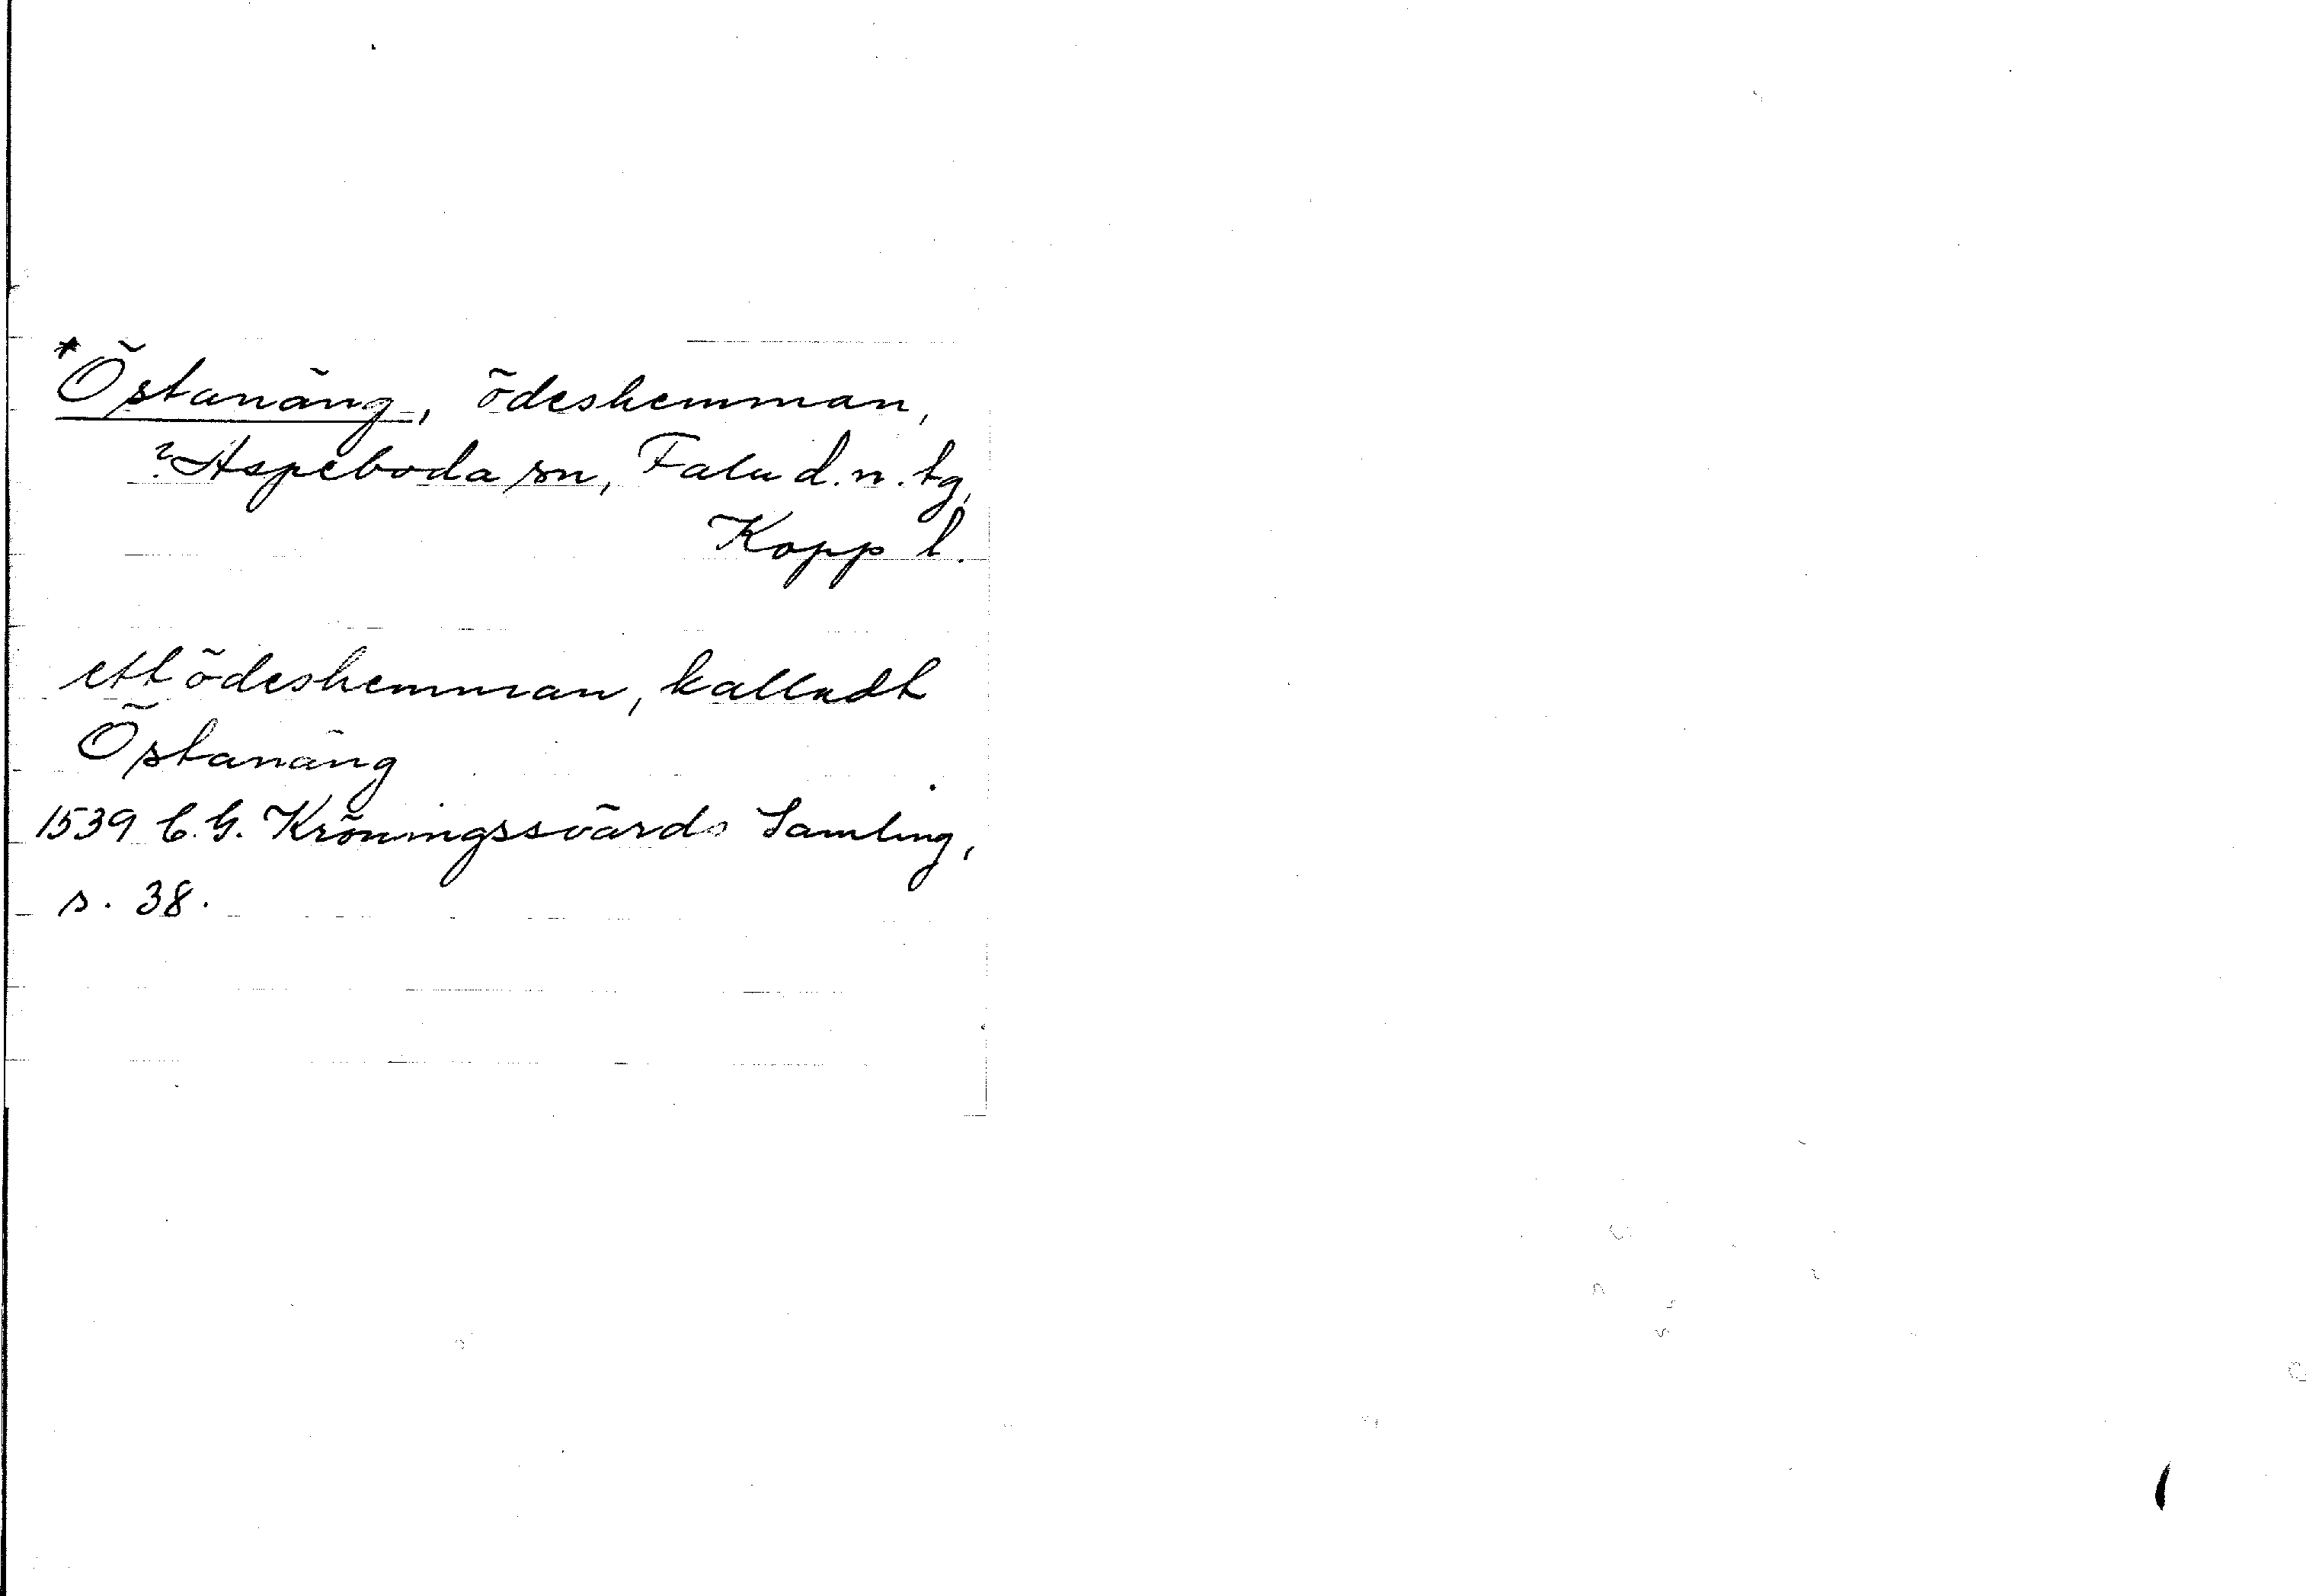 *Östanäng, ödeshemman,
?Aspeboda sn, Falu d.n. tg,
Kopp l.
ett ödeshemman, kalladt
Östanäng
1539 C.G. Kröningssvärds Samling,
s. 38.